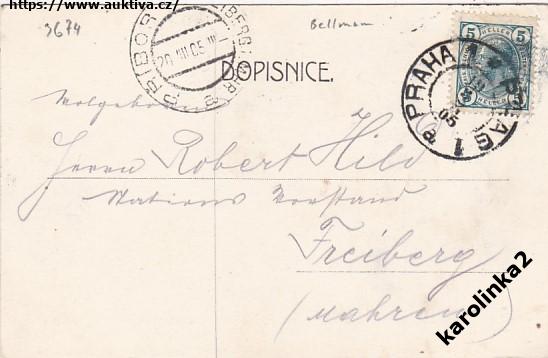 https://www.auktiva.cz/
3674
Bellmann
PŘÍBOR
FREIBERG
20 III 05
5 HELLER 5
PRAHA 1 * PRAG 1
05
DOPISNICE.
Wolgeboren
Herrn Robert Hild
Stations Vorstand
Freiberg
(Mähren)
karolinka2